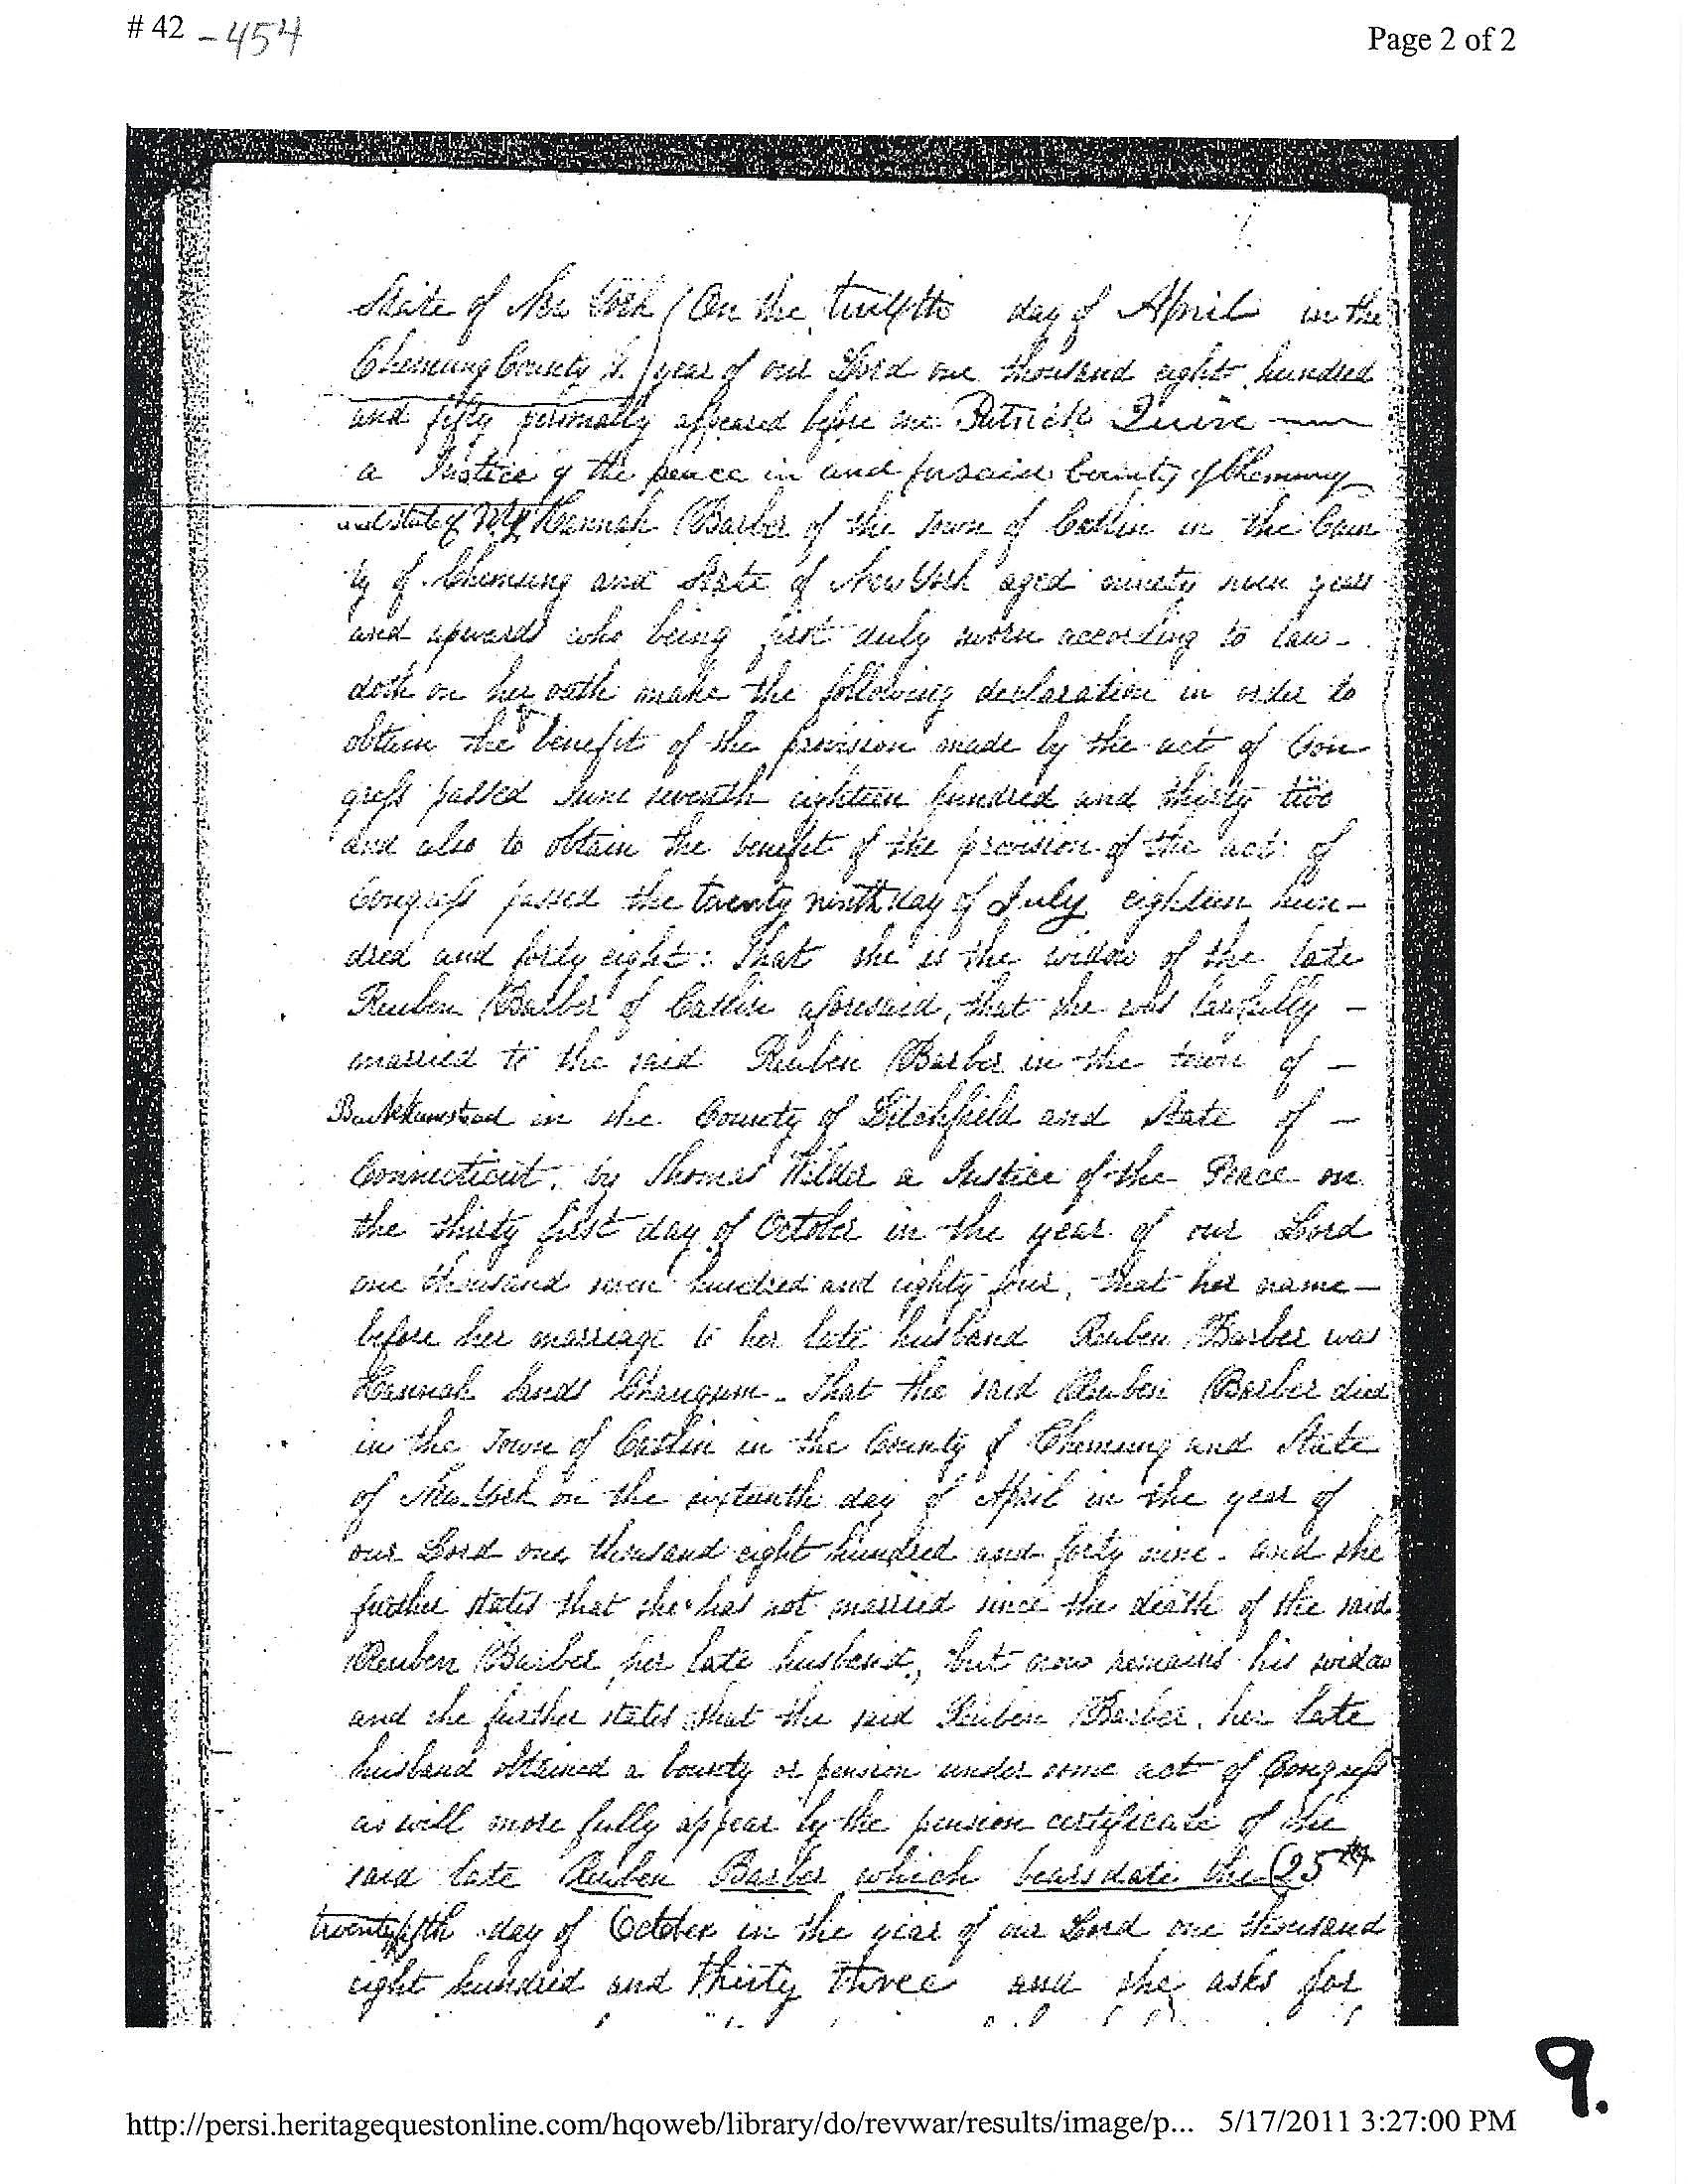 # 42 - 454
Page 2 of 2
State of New York ( On the twelfth day of April in the
Chemung County ss. ) year of our Lord one thousand eight hundred
and fifty personally appeared before me Patrick Quinn
a Justice of the peace in and for said County of Chemung
and state of NY Hannah Barber of the Town of Catlin in the Coun
ty of Chemung and State of New York aged ninety years
and upwards who being first duly sworn according to law -
doth on her oath make the following declaration in order to
obtain the benefit of the provision made by the act of Con
gress passed June seventh eighteen hundred and thirty two
and also to obtain the benefit of the provision of the act of
Congress passed the twenty ninth day of July eighteen hun-
dred and forty eight: That she is the widow of the late
Reuben Barber of Catlin aforesaid, that she was lawfully -
married to the said Reuben Barber in the town of -
Barkhamstead in the County of Litchfield and State of -
Connecticut, by Thomas Wilder a Justice of the Peace on
the thirty first day of October in the year of our Lord
one thousand seven hundred and eighty four, that her name -
before her marriage to her late husband Reuben Barber was
Hannah Sands Chaugum - That the said Reuben Barber died
in the Town of Catlin in the County of Chemung and State
of New York on the sixteenth day of April in the year of
our Lord one thousand eight hundred and forty nine - and she
further states that she has not married since the death of the said
Reuben Barber, her late husband, but now remains his widow
and she further states that the said Reuben Barber, her late
husband obtained a bounty or pension under some act of Congress
as will more fully appear by the pension certificate of the
said late Reuben Barber which bears date the (25th
twenty fifth day of October in the year of our Lord one thousand
eight hundred and thirty three and she asks for
9.
http://persi.heritagequestonline.com/hqoweb/library/do/revwar/results/image/p... 5/17/2011 3:27:00 PM